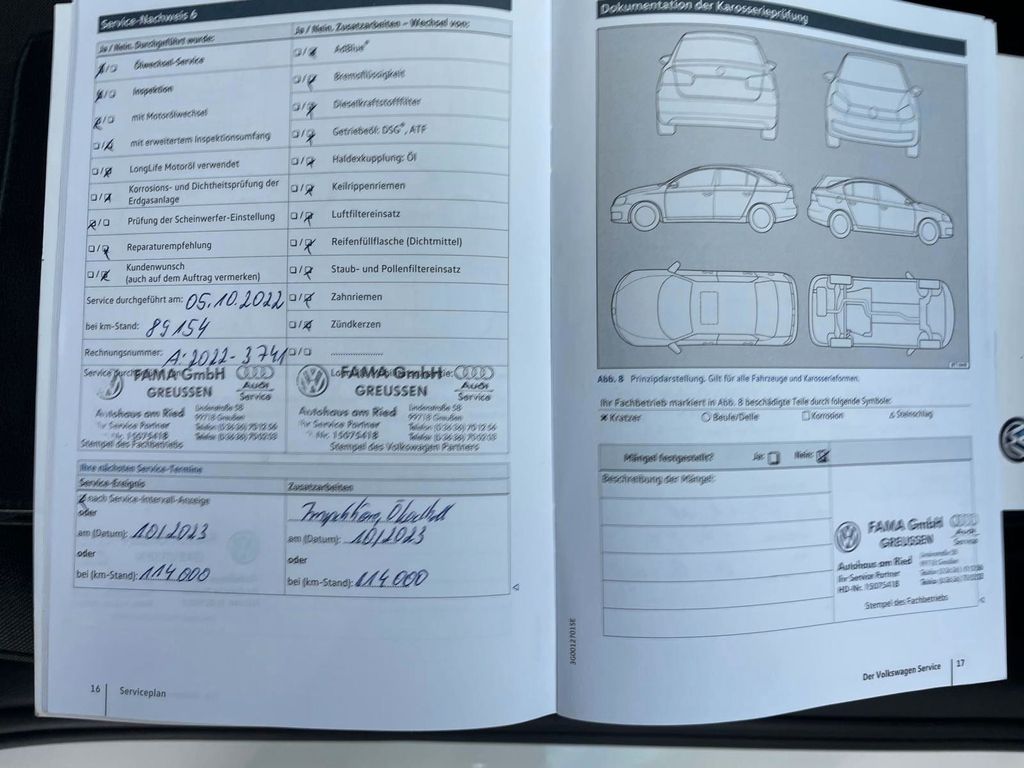 Service-Nachweis 6
Ja / Nein, Durchgeführt wurde:
Ölwechsel-Service
Inspektion
mit Motorölwechsel
mit erweitertem Inspektionsumfang
LongLife Motoröl verwendet
Korrosions- und Dichtheitsprüfung der
Erdgasanlage
Prüfung der Scheinwerfer-Einstellung
Reparaturempfehlung
Kundenwunsch
(auch auf dem Auftrag vermerken)
Service durchgeführt am: 05.10.2022
bei km-Stand: 89154
Rechnungsnummer: A-2022-3741
Service durchgeführt
FAMA GmbH
GREUSSEN
Audi
Service
Autohaus am Ried
Ihr Service Partner
Nr. 15075418
Lindenstraße 58
99718 Greußen
Telefon (03636) 70 12 56
Telefax (03636) 70 02 58
Stempel des Fachbetriebs
Ja / Nein, Zusatzarbeiten – Wechsel von:
AdBlue®
Bremsflüssigkeit
Dieselkraftstofffilter
Getriebeöl: DSG®, ATF
Haldexkupplung: Öl
Keilrippenriemen
Luftfiltereinsatz
Reifenfüllflasche (Dichtmittel)
Staub- und Pollenfiltereinsatz
Zahnriemen
Zündkerzen
.....................
FAMA GmbH
GREUSSEN
Audi
Service
Autohaus am Ried
Ihr Service Partner
Nr. 15075418
Lindenstraße 58
99718 Greußen
Telefon (03636) 70 12 56
Telefax (03636) 70 02 58
Stempel des Volkswagen Partners
Ihre nächsten Service-Termine
Service-Ereignis
nach Service-Intervall-Anzeige
oder
am (Datum): 10/2023
oder
bei (km-Stand): 114.000
Zusatzarbeiten
am (Datum): 10/2023
oder
bei (km-Stand): 114.000
16
Serviceplan
Dokumentation der Karosserieprüfung
Abb. 8 Prinzipdarstellung. Gilt für alle Fahrzeuge und Karosserieformen.
Ihr Fachbetrieb markiert in Abb. 8 beschädigte Teile durch folgende Symbole:
Kratzer
Beule/Delle
Korrosion
Steinschlag
Mängel festgestellt? Ja: Nein:
Beschreibung der Mängel:
FAMA GmbH
GREUSSEN
Audi
Service
Autohaus am Ried
Ihr Service Partner
HD-Nr. 15075418
Stempel des Fachbetriebs
3G0012701SE
Der Volkswagen Service
17